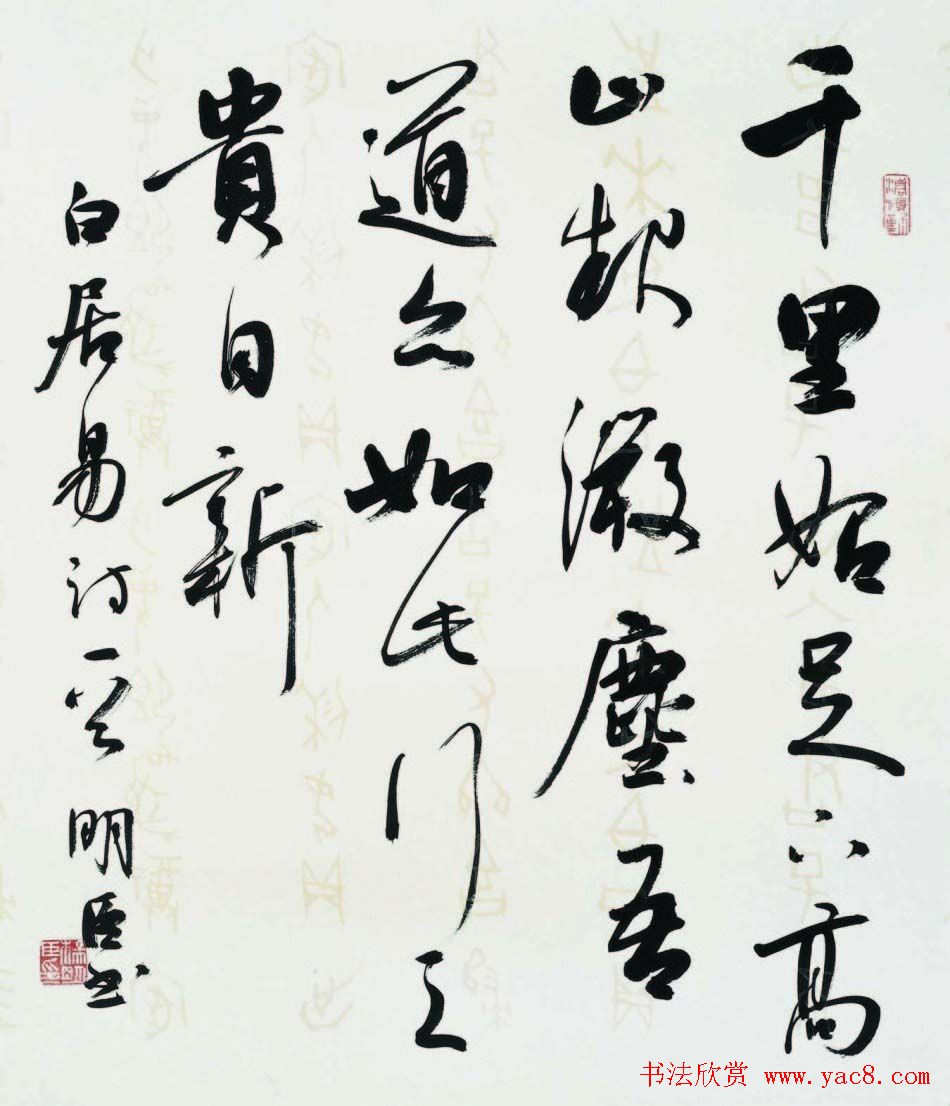 千里始足下高
山起微塵吾
道亦如此行之
貴日新
白居易詩一首 明臣書
书法欣赏 www.yac8.com